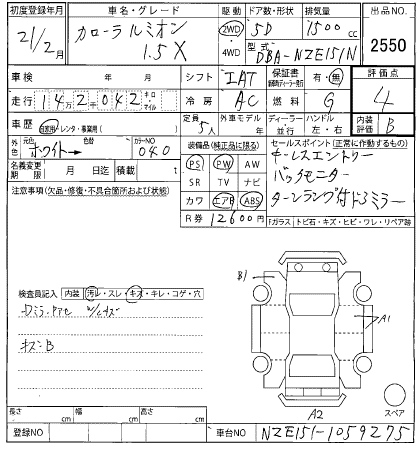 初度登録年月 車名・グレード 駆動 ドア数・形状 排気量 出品NO.
21/2月 カローラルミオン 1.5X 2WD・4WD 5D 1500cc 2550
型式 DBA-NZE151N
車検 年 月 シフト IAT 保証書 有・無 評価点
走行 142千042キロ・マイル 冷房 AC 燃料 G 4
車歴 自家用・レンタ・事業用( ) 定員 5人 外車モデル年 年 ディーラー・並行 ハンドル 左・右 内装評価 B
外色 元色 ホワイト→ 色替 カラーNO 040
装備品(純正品に限る) セールスポイント(正常に作動するもの)
名義変更期限 月 日迄 積載 t
PS PW AW キーレスエントリー
SR TV ナビ バックモニター
注意事項(欠品・修復・不具合箇所および状態) カワ エアB ABS ターンランプ付ドアミラー
R券 12600円
Fガラス トビ石・キズ・ヒビ・ワレ・リペア跡
B1
検査員記入 内装 汚レ・スレ・キズ・キレ・コゲ・穴
A1
キズ:B
スペア
A2
長さ cm 幅 cm 高さ cm
登録NO 車台NO NZE151-1059275